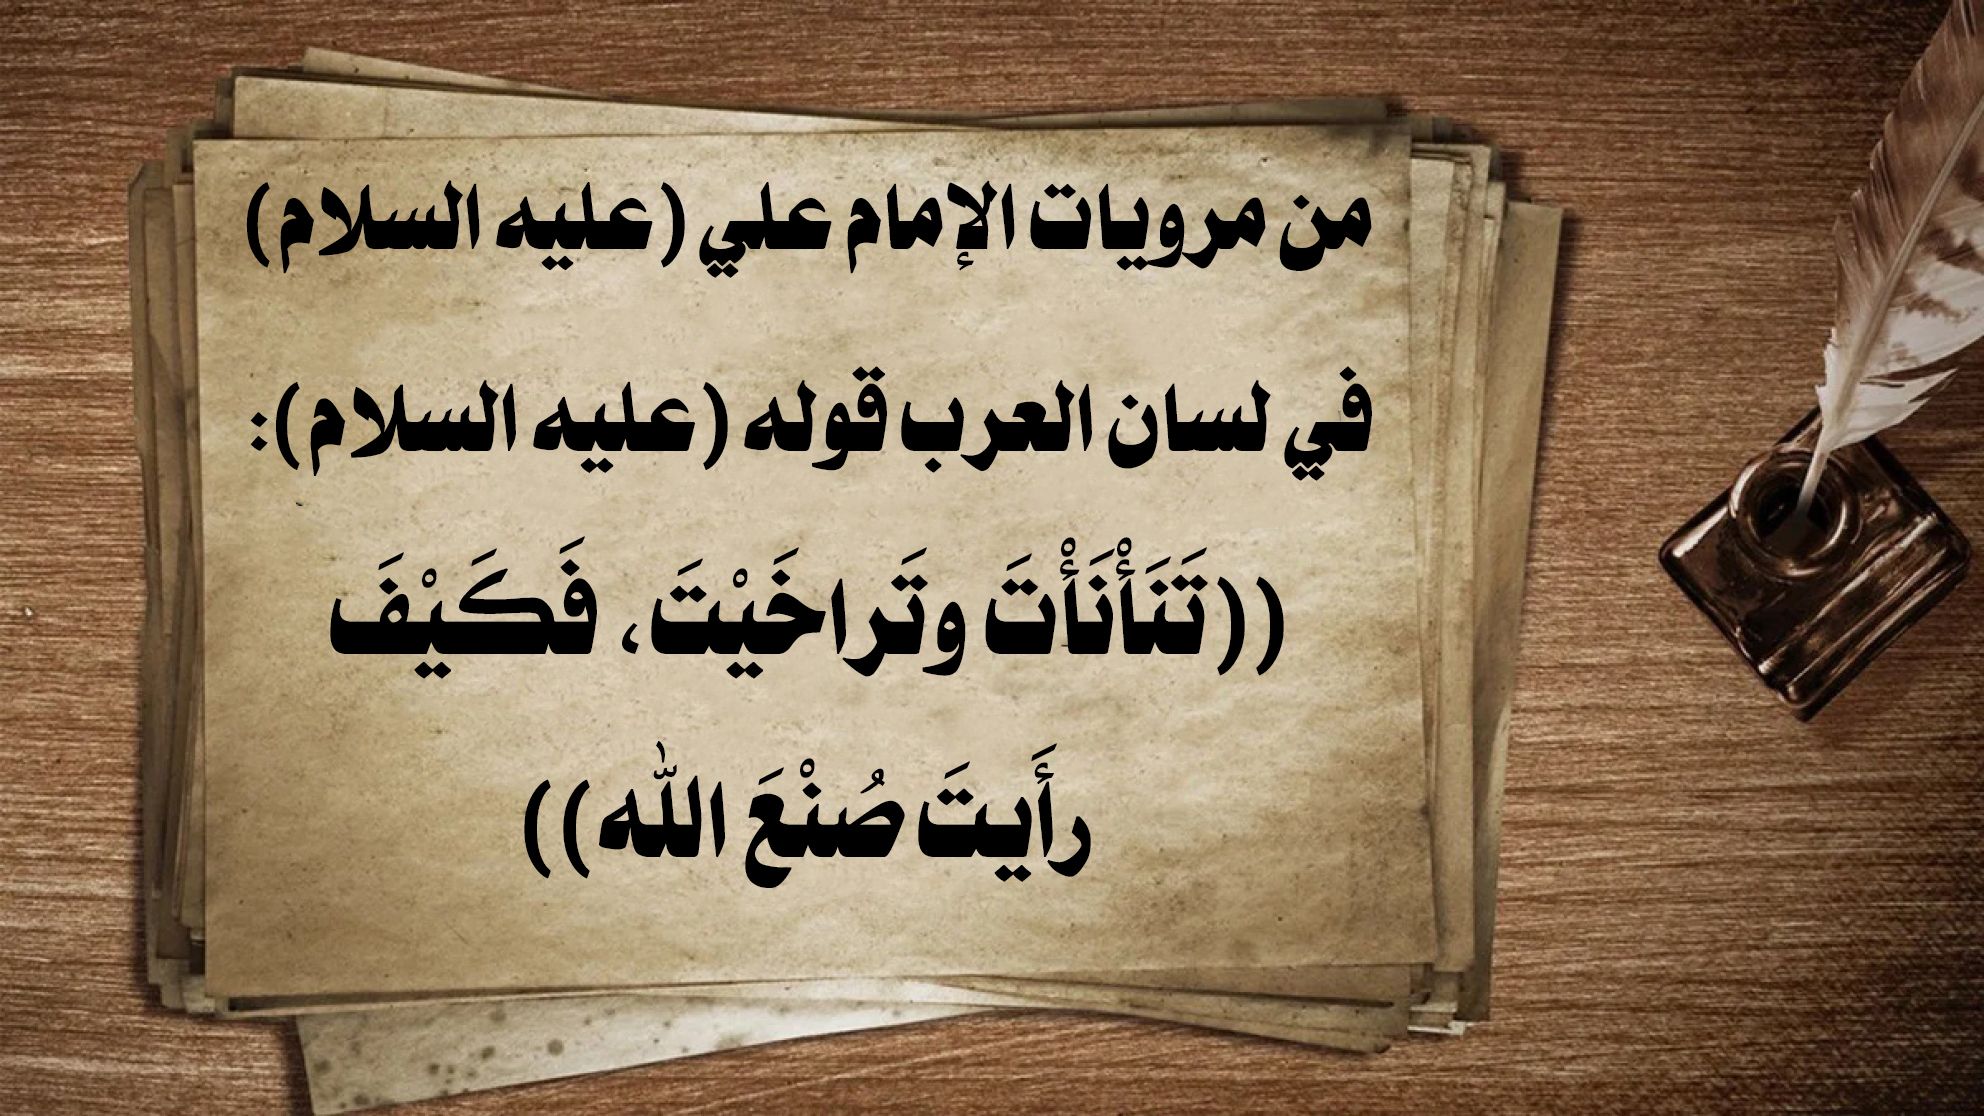 من مرويات الإمام علي (عليه السلام)
في لسان العرب قوله (عليه السلام):
((تَنَأْنَأْتَ وتَراخَيْتَ، فَكَيْفَ
رأَيتَ صُنْعَ الله))